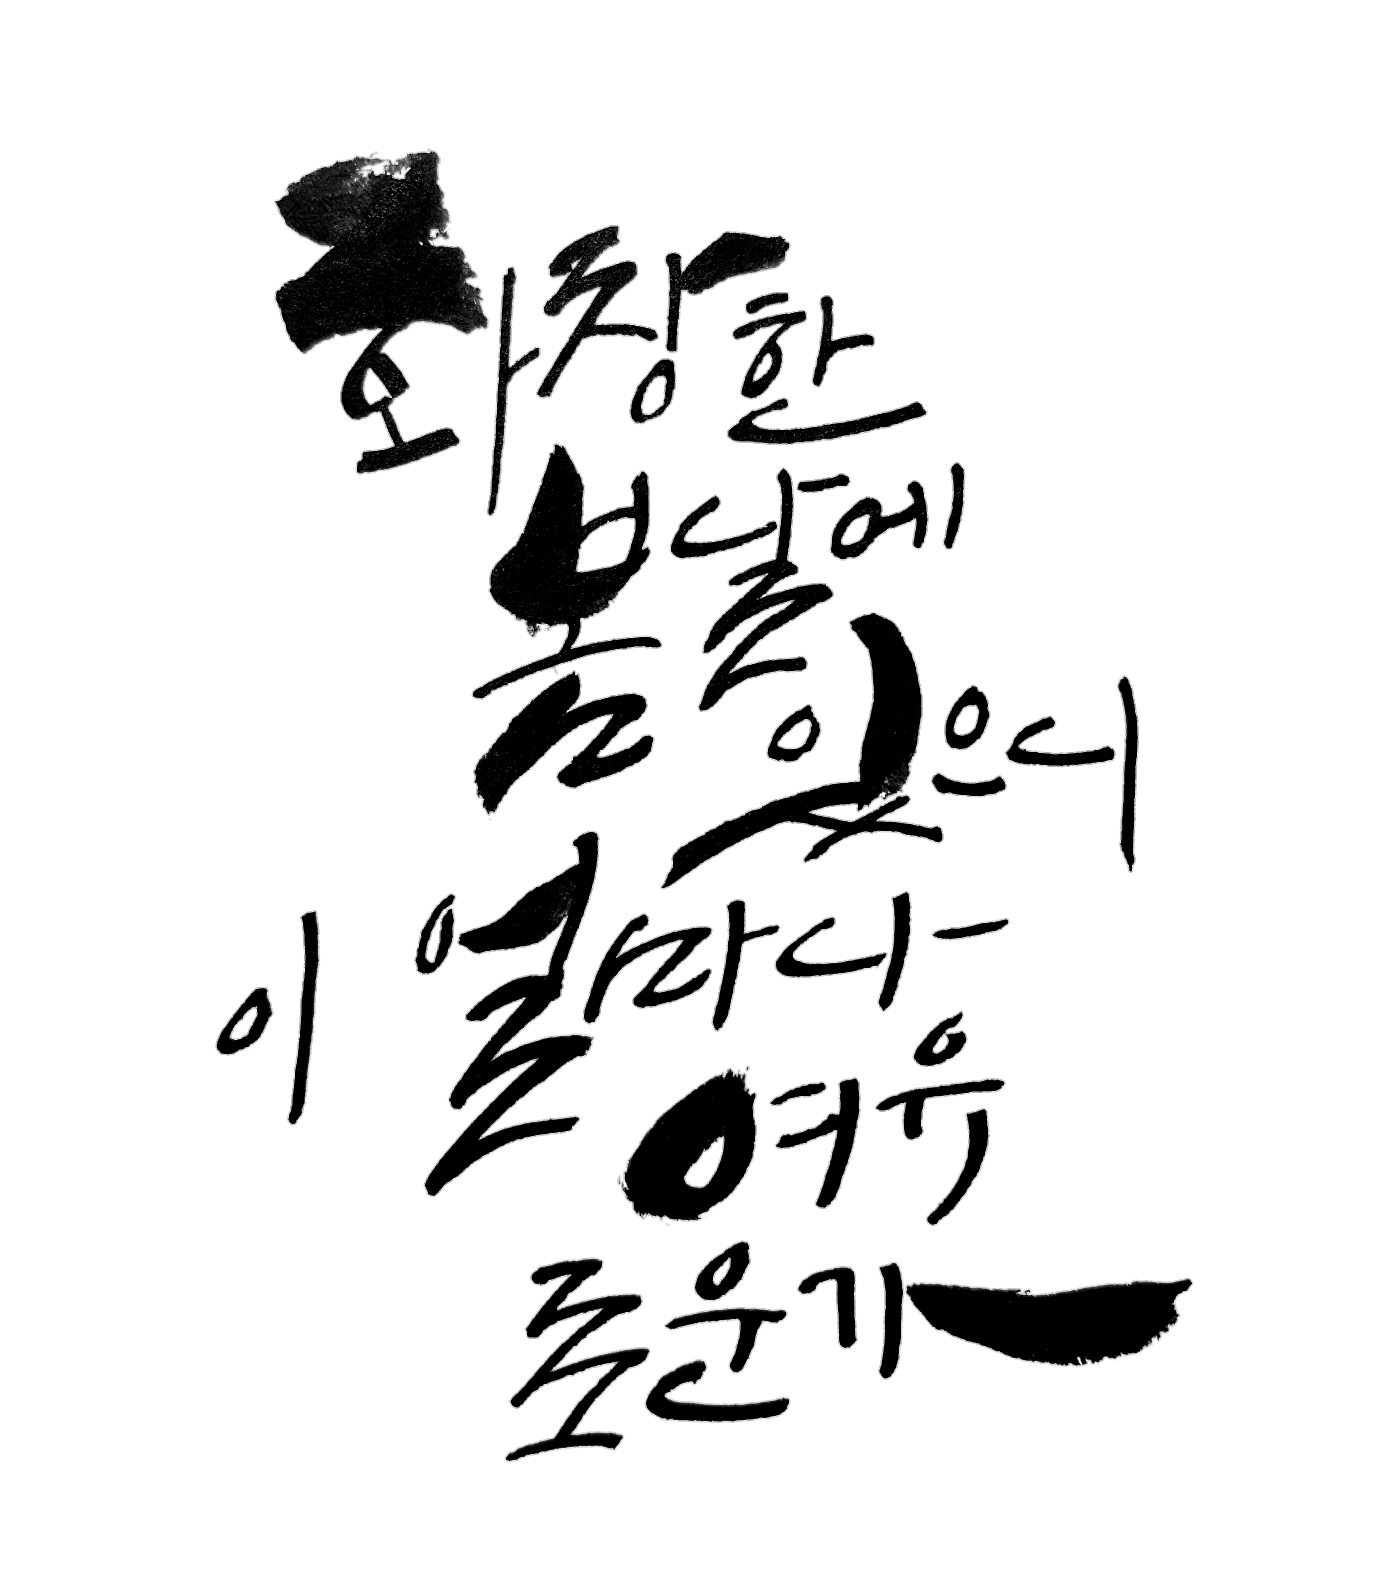 화창한
봄날에
있으니
이 얼마나
여유
로운가